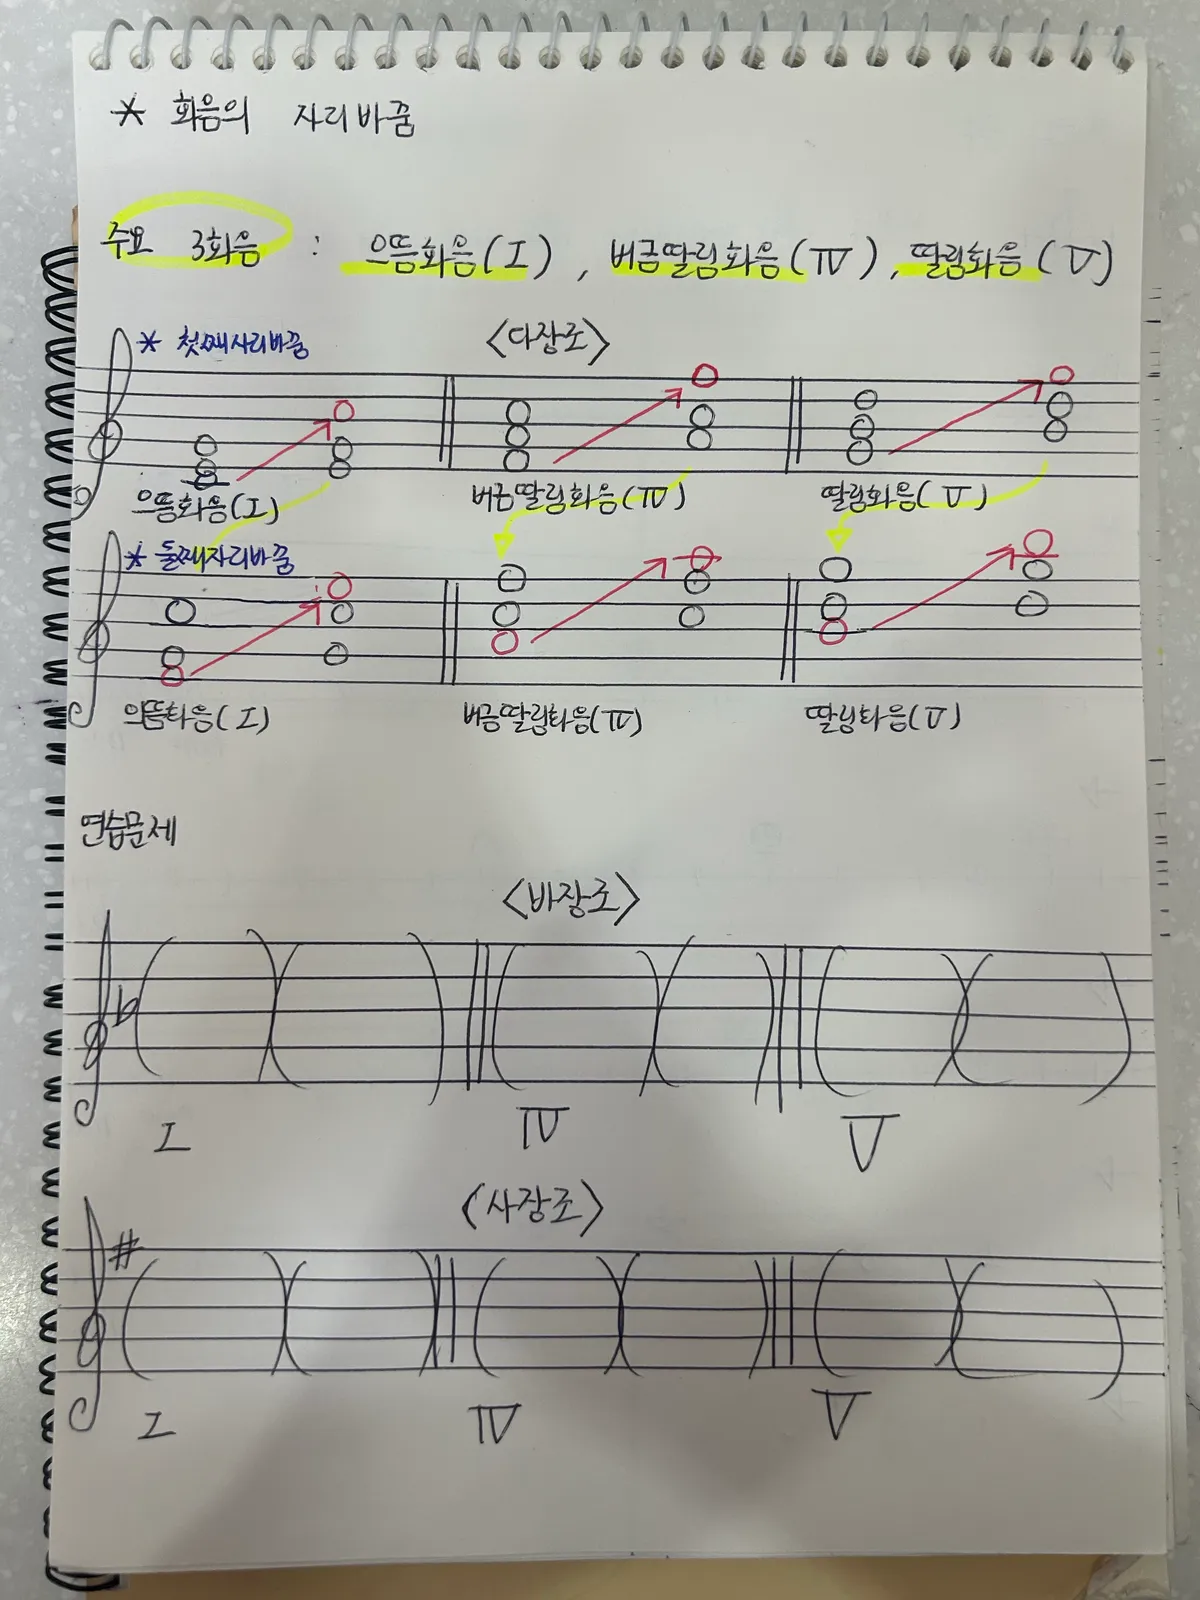 * 화음의 자리바꿈
주요 3화음 : 으뜸화음(I), 버금딸림화음(IV), 딸림화음(V)
* 첫째자리바꿈
<다장조>
으뜸화음(I) 버금딸림화음(IV) 딸림화음(V)
* 둘째자리바꿈
으뜸화음(I) 버금딸림화음(IV) 딸림화음(V)
연습문제
<바장조>
I IV V
<사장조>
I IV V